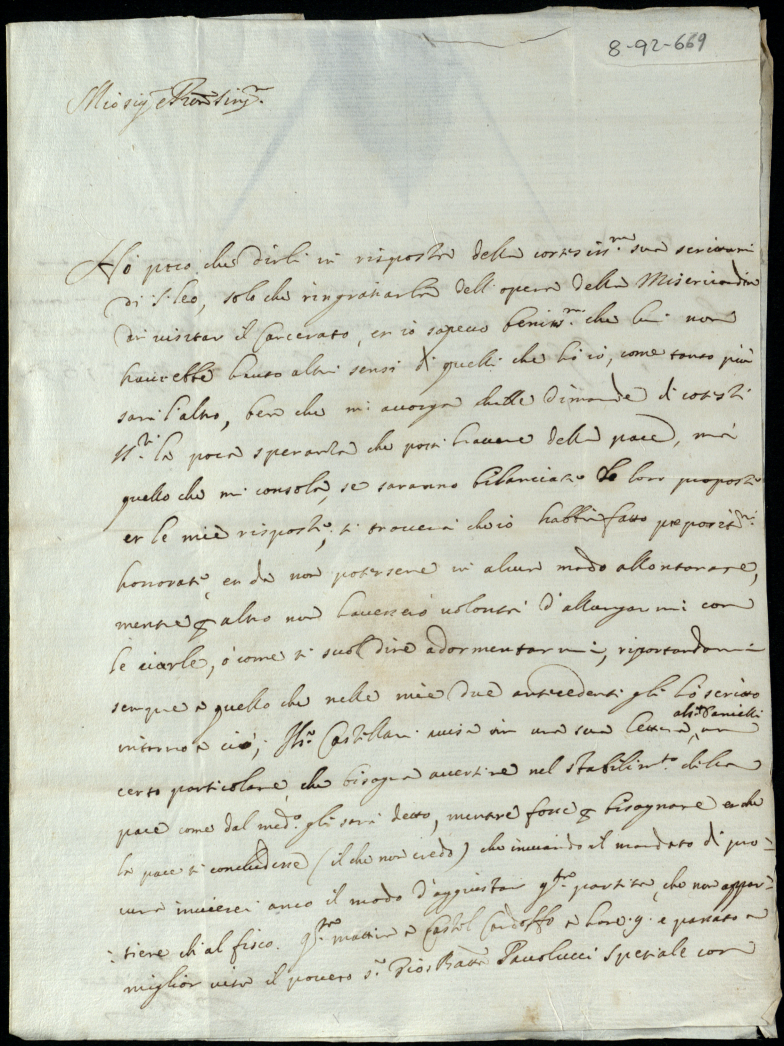 8-92-669
Mio sig.r e Pron sing.r
Hò poco che dirli in risposta della cortesiss.ma sua scrittami
di S. Leo, solo che ringratiarla dell'opera della Misericordia
di visitar il Carcerato, et io sapevo beniss.mo che lui non
haverebbe hauto altri sensi di quelli che hò io, come tanto più
sarà l'altro, ben che mi accorga dalle dimande di cotesti
SS.ri la poca speranza che possi havere della pace, mà
quello che mi consola, se saranno bilanciate le loro proposte
et le mie risposte, si troverà che io habbia fatto propositi.ni
honorate, et da non potersene in alcun modo allontanare,
mentre p altro non havessero volontà d'allungarmi con
le ciarle, ò come si suol dire adormentarmi, riportandomi
sempre a quello che nelle mie due antecedenti gli hò scritto
intorno a ciò; Il S.r Castellani avisa in una sua lettera al S.r Danielli, un
certo particolare, che bisogna avertire nel stabilim.to della
pace come dal med.o gli sarà detto, mentre fosse p bisognare et che
la pace si concludesse (il che non credo) che inviando il mandato di pro=
cura inviarei anco il modo d'aggiustar q.ta partita, che non appar=
tiene che al fisco. q.ta mattina a Castel Ardolfo a hore 9. è passato a
miglior vita il povero S.r Gios Batta Pavolucci speziale con